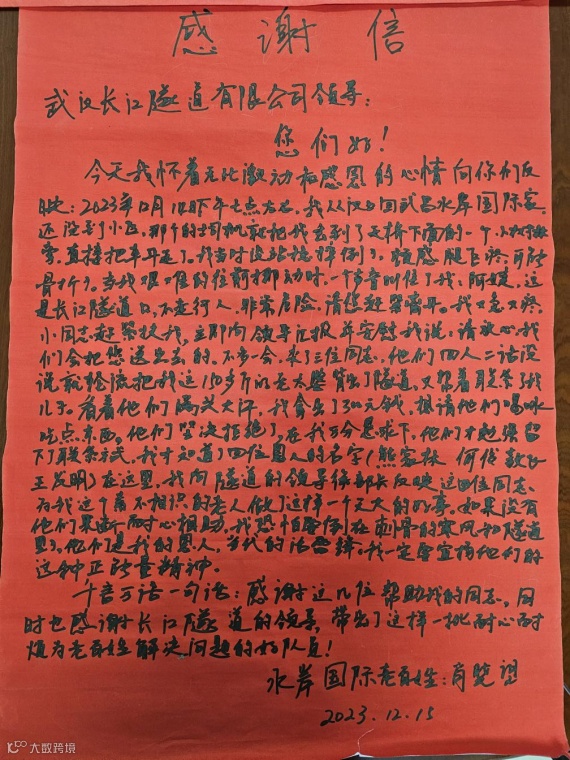 感谢信
武汉长江隧道有限公司领导:
您们好!
今天我怀着无比激动和感恩的心情向你们反
映:2023年12月 日下午七点左右,我从汉口回武昌水岸国际家,
还没到小区,那个的士司机就把我丢到了天桥下面的一个
旁,直接把车开走了。我当时没站稳摔倒了,极感腿
骨折了。当我艰难的往前挪动时,一个声音叫住了我:阿姨,这
是长江隧道口,不走行人,非常危险,请您赶紧离开。我又急又疼,
小同志赶紧扶我,立即向领导汇报并安慰我说:请放心,我
们会把您送出去的。不多一会,来了三位同志,他们四人二话没
说就轮流把我这150多斤的老太婆背出了隧道,又帮着联系了我
儿子。看着他们满头大汗,我拿出了300元钱,想请他们喝水
吃点东西。他们坚决拒绝了,在我万分恳求下,他们才勉强留
下了联系方式,我才知道了四位恩人的名字(熊家林 何伐
王友明)在这里,我向隧道的领导 反映这四位同志
为我这个素不相识的老人做了这样一个天大的好事。如果没有
他们果断耐心相助,我恐怕要倒在刺骨的寒风和隧道
里了。他们是我的恩人,当代的活雷锋。我一定要宣扬他们的
这种正能量精神。
千言万语一句话:感谢这几位帮助我的同志,同
时也感谢长江隧道的领导,带出了这样一批耐心耐
烦为老百姓解决问题的好队员!
水岸国际老百姓:肖
2023.12.15
大数跨境